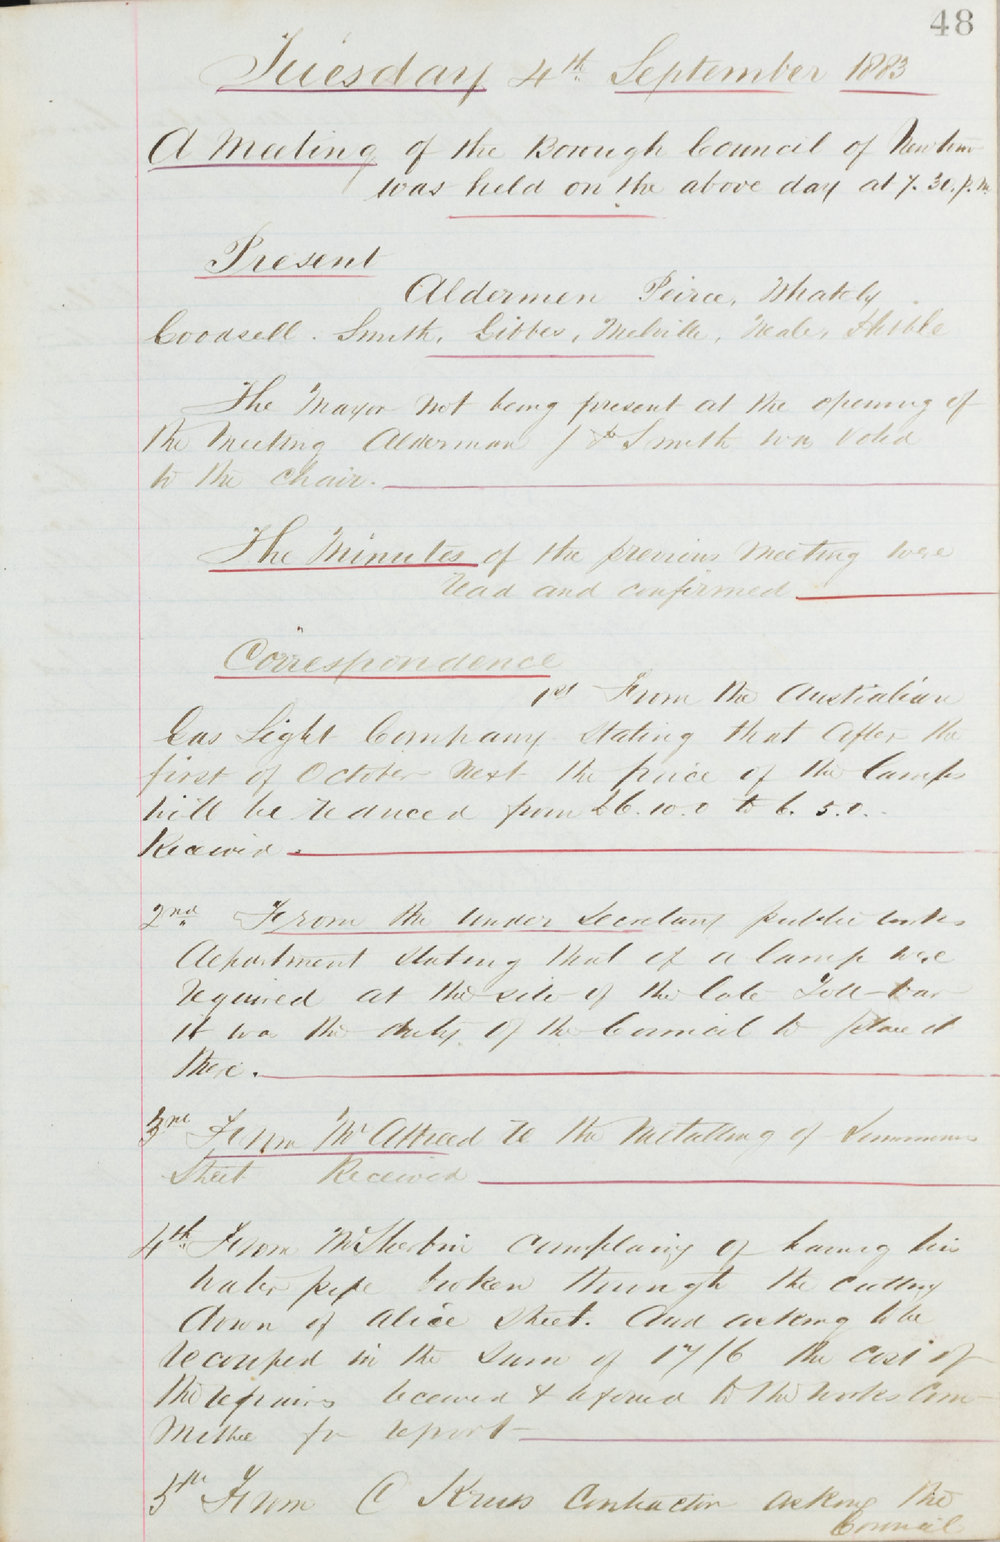 48
Tuesday 4th September 1883
A Meeting of the Borough Council of Newtown
was held on the above day at 7.30. p.m.
Present
Aldermen Peirce, Whately
Goodsell. Smith, Gibbes, Melville, Neale, Hibble
The Mayor not being present at the opening of
the Meeting Alderman Smith was Voted
to the Chair.
The Minutes of the previous Meeting were
read and confirmed
Correspondence
1st From the Australian
Gas Light Company stating that after the
first of October next the price of the lamps
will be reduced from £6.10.0 to 6.5.0.
Received.
2nd From the Under Secretary public works
department stating that if a lamp were
required at the site of the late Toll-bar
it was the duty of the Council to place it
there.
3rd From Mr Attreed re the Metalling of
Street Received
4th From Mr complaing of having his
water pipe broken through the cutting
down of Alice Street. And asking to be
recouped in the Sum of 17/6 the cost of
the repairs received & refered to the works Com-
mittee for report-
5th From C Kruss Contractor asking the
Council